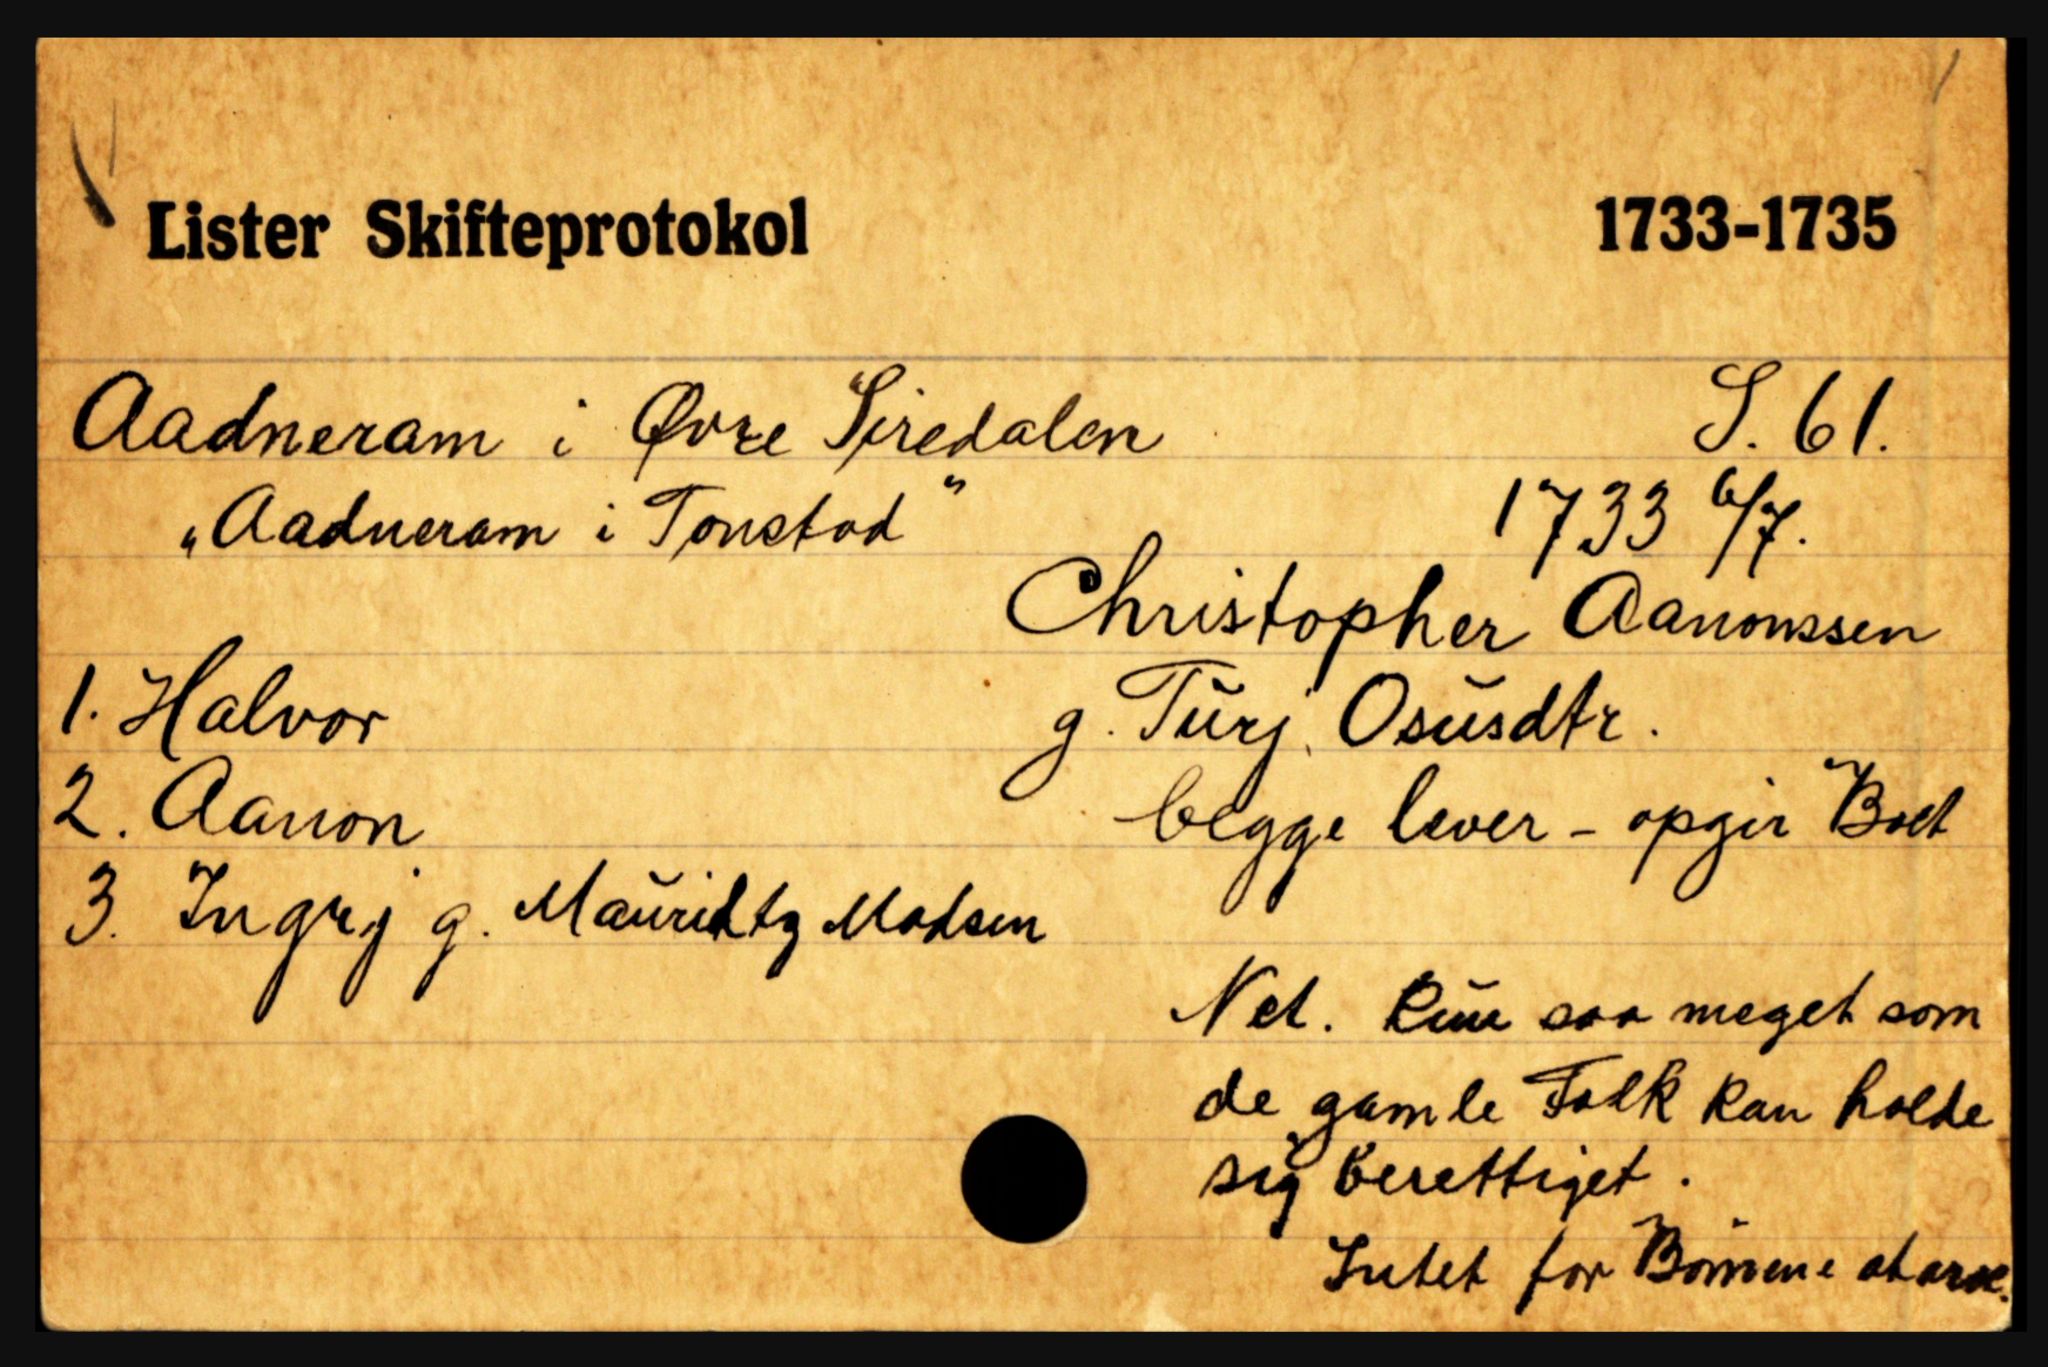 Lister Skifteprotokol 1733-1735
Aadneram i Øvre Siredalen S. 61.
„Aadneram i Tonstad” 1733 6/7.
Christopher Aanonssen
1. Halvor g. Tŭrj Osŭsdtr.
2. Aanon begge lever - opgir Boet
3. Ingrj g. Maŭridtz Madsen
Net. kŭn saa meget som
de gamle Folk kan holde
sig berettiget.
Intet for Börnene at arve.